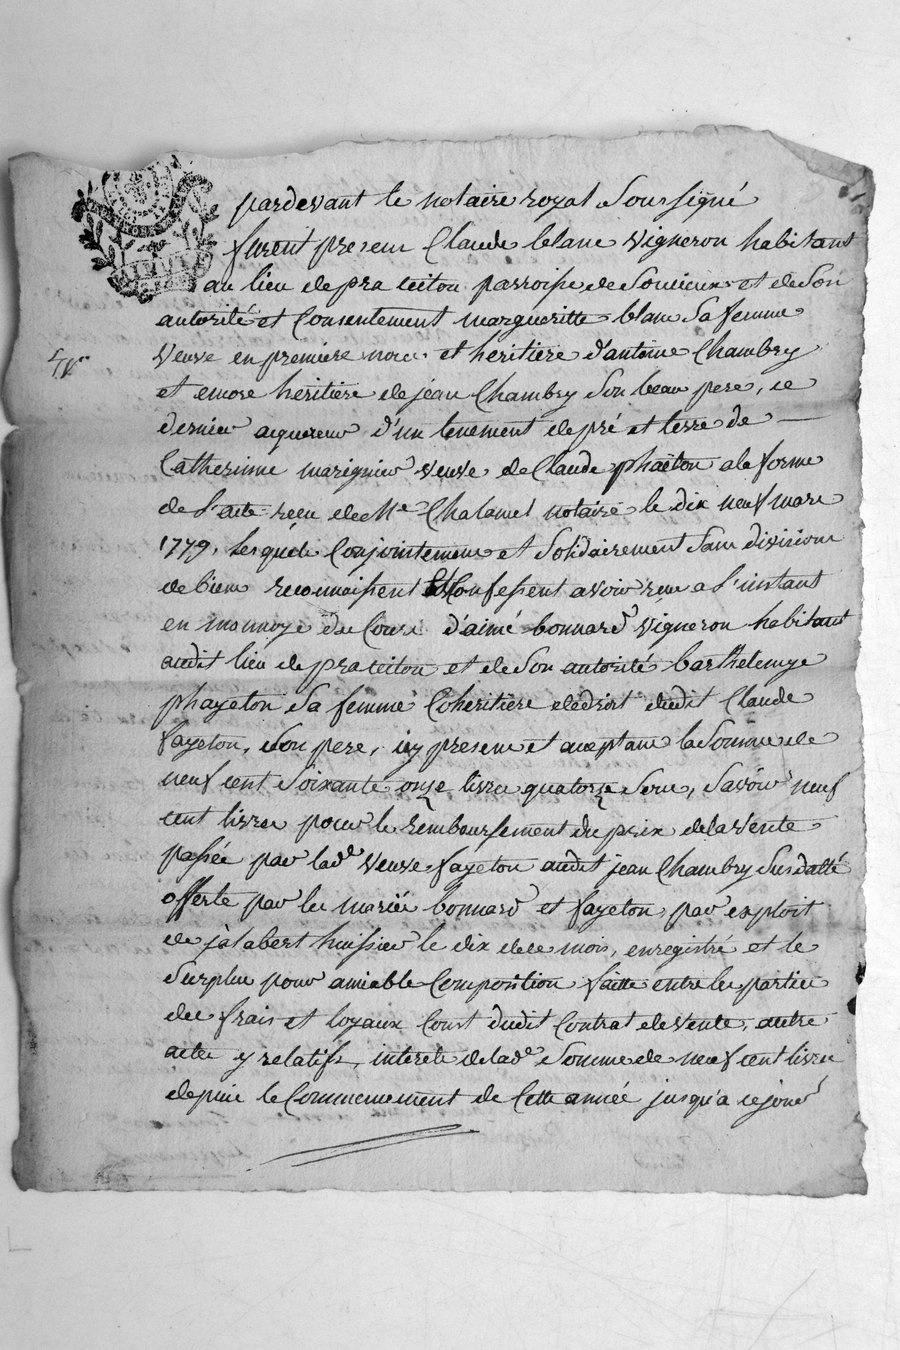 pardevant le notaire royal Soussigné
furent presens Claude blanc vigneron habitant
au lieu de pra teiton parroisse de Soucieux et de Son
autorité et Consentement margueritte blanc Sa femme
veuve en premiere noces et heritiere d'antoine Chambry
et encore heritiere de jean Chambry Son beau pere, ce
dernier aquereur d'un tenement de pré et terre de
Catherinne marignier veuve de Claude phaëton a la forme
de l'acte recu de Me Chalamel notaire le dix neuf mars
1779, Lesquels Conjointement et Solidairement Sans division
de biens reconnaissent et Confessent avoir reçu a l'instant
en monnoye du Cours d'aimé bonnard vigneron habitant
audit lieu de prateiton et de Son autorité barthelemye
phayeton Sa femme Coheritiere de droit dudit Claude
fayeton, Son pere, icy presens et aceptans la Somme de
neuf cent Soixante onze livres quatorze Sous, Savoir neuf
cent livres pour le remboursement du prix de la vente
passée par lade veuve fayeton audit jean Chambry Susdatté
offerte par les mariés bonnard et fayeton, par exploit
de jalabert huissier le dix de ce mois, enregistré et le
Surplus pour amiable Composition faitte entre les parties
des frais et loyaux Cousts dudit Contrat de vente, autre
actes y relatifs, interets de lade Somme de neuf cent livres
depuis le Commencement de Cette année jusqu'a ce jour